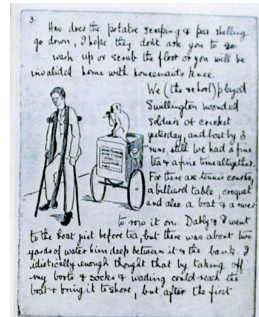 3.
How does the potatoe scraping & pea shelling
go down, I hope they dont ask you to
wash up or scrub the floor or you will be
invalided home with housemaids knee.
We (the school) played
Swillington wounded
soldiers at cricket
yesterday, and beat by 3
runs, still we had a fine
tea & a fine time altogether.
For there are tennis courts,
a billiard table, croquet
and also a boat & a river
to row it on. Dahly & I went
to the boat just before tea, but there was about two
yards of water him deep between it & the bank. I
idiotically enough thought that by taking off
my boots & socks & wading could reach the
boat & bring it to shore, but after the first